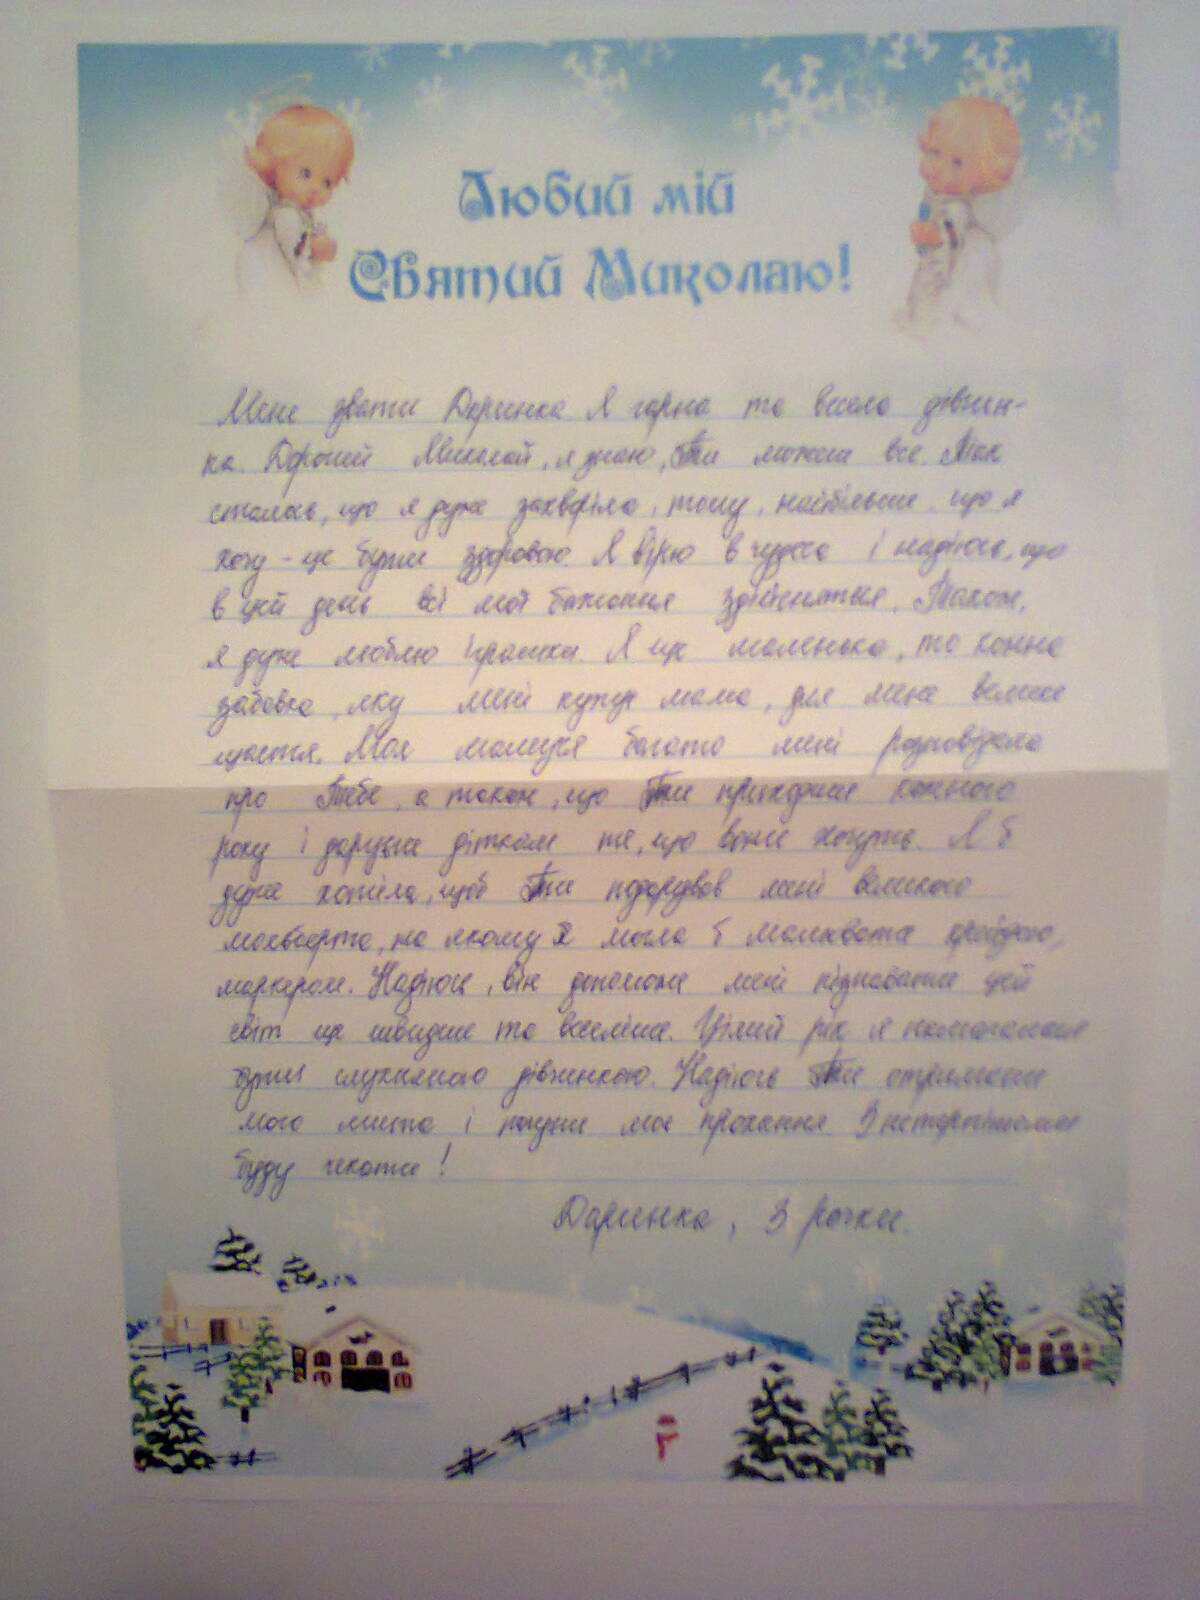 Любий мій
Святий Миколаю!
Мене звати Даринка Я гарна та весела дівчин-
ка. Дорогий Миколай, я знаю, Ти можеш все. Так
сталось, що я дуже захворіла, тому, найбільше, що я
хочу - це бути здоровою. Я вірю в чудеса і надіюсь, що
в цей день всі мої бажання здійсняться. Також,
я дуже люблю іграшки. Я ще маленька, то кожна
забавка, яку мені купує мама, для мене велике
щастя. Моя мамуся багато мені розповідала
про Тебе, а також, що Ти приходиш кожного
року і даруєш діткам те, що вони хочуть. Я б
дуже хотіла, щоб Ти подарував мені великого
мольберта, на якому я могла б малювати крейдою,
маркером. Надіюсь, він допоможе мені пізнавати цей
світ ще швидше та веселіше. Цілий рік я намагалася
бути слухняною дівчинкою. Надіюсь Ти отримаєш
мого листа і почуєш моє прохання З нетерпітням
буду чекати!
Даринка, 3 рочки.